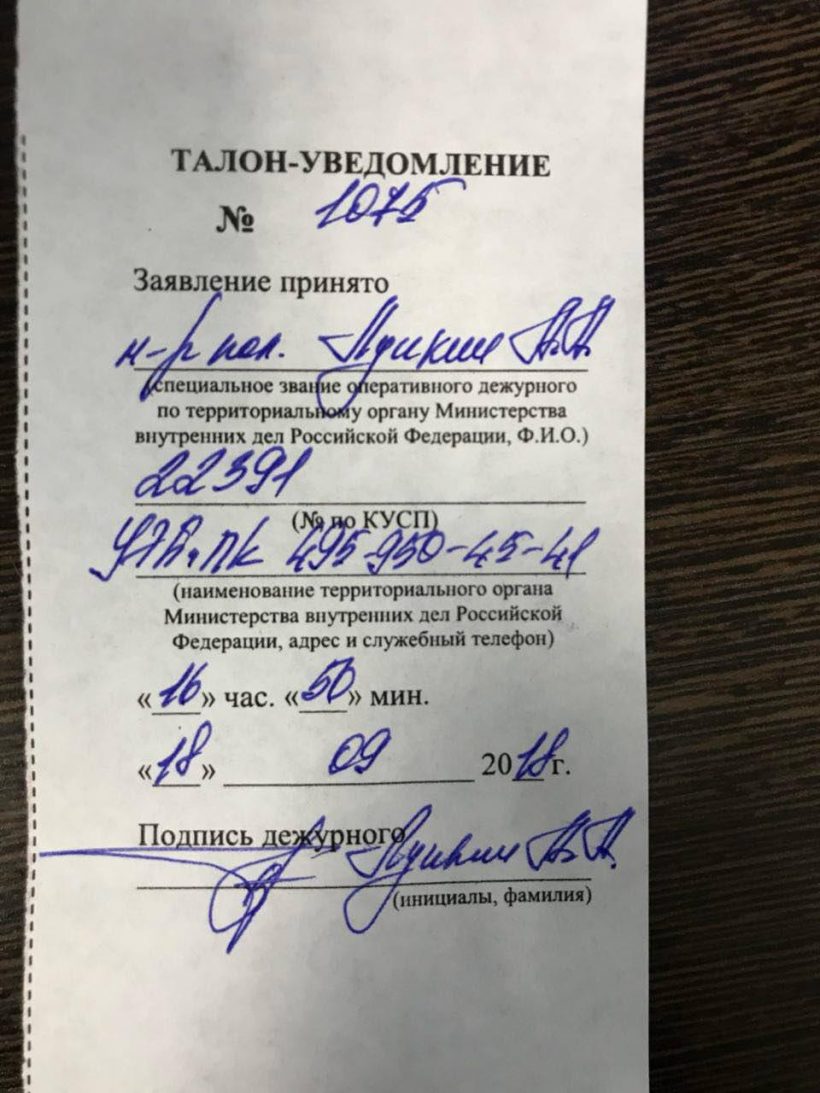 ТАЛОН-УВЕДОМЛЕНИЕ
№ 1075
Заявление принято
м-р пол. А.А.
(специальное звание оперативного дежурного
по территориальному органу Министерства
внутренних дел Российской Федерации, Ф.И.О.)
22391
(№ по КУСП)
УЭБиПК 495-950-45-41
(наименование территориального органа
Министерства внутренних дел Российской
Федерации, адрес и служебный телефон)
«16» час. «50» мин.
«18» 09 2018 г.
Подпись дежурного
А.А.
(инициалы, фамилия)